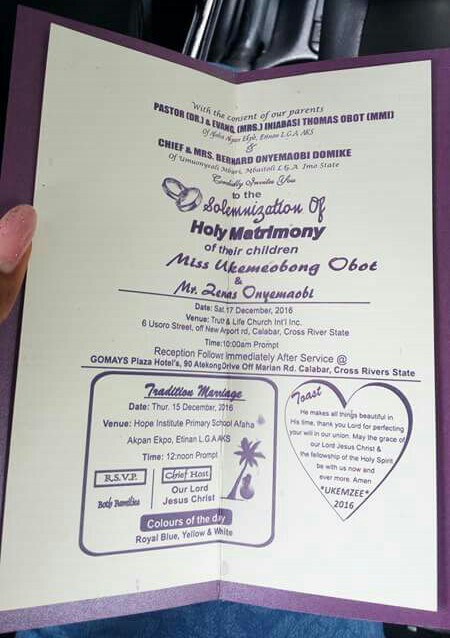 With the consent of our parents
PASTOR (DR.) & EVANG (MRS.) INIABASI THOMAS OBOT (MMI)
Of Afaha Akpan Ekpo, Etinan L.G.A AKS
&
CHIEF & MRS. BERNARD ONYEMAOBI DOMIKE
Of Umuonyeali Mbieri, Mbaitoli L.G.A Imo State
Cordially Invites You
to the
Solemnization Of
Holy Matrimony
of their children
Miss Ukemeobong Obot
&
Mr. Zenas Onyemaobi
Date: Sat.17 December, 2016
Venue: Truth & Life Church Int'l Inc.
6 Usoro Street, off New Airport rd, Calabar, Cross River State
Time:10:00am Prompt
Reception Follows Immediately After Service @
GOMAYS Plaza Hotel's, 90 Atekong Drive Off Marian Rd. Calabar, Cross Rivers State
Tradition Marriage
Date: Thur. 15 December, 2016
Venue: Hope Institute Primary School Afaha
Akpan Ekpo, Etinan L.G.A AKS
Time: 12:noon Prompt
R.S.V.P.
Both Families
Chief Host
Our Lord
Jesus Christ
Colours of the day
Royal Blue, Yellow & White
Toast
He makes all things beautiful in
His time, thank you Lord for perfecting
your will in our union. May the grace of
our Lord Jesus Christ &
the fellowship of the Holy Spirit
be with us now and
ever more. Amen
*UKEMZEE*
2016